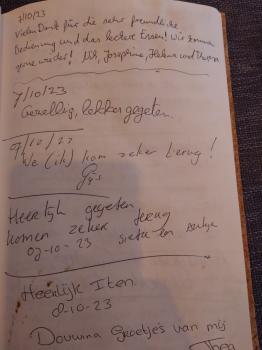 7/10/23
Vielen Dank für die sehr freundliche
Bedienung und das leckere Essen! Wir kommen
gerne wieder! Josephine, Helena und
7/10/23
Gezellig, lekker gegeten.
9/10/23
We (ik) kom zeker terug!
Gijs
Heerlijk gegeten
komen zeker terug
07-10-23 Sietse en
Heerlijk Iten.
8-10-23
Douwina Groetjes van mij
Thea